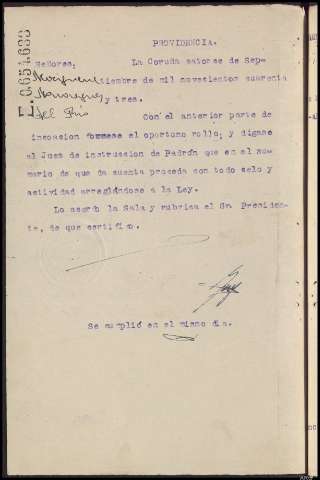 PROVIDENCIA.
Señores. La Coruña catorce de Sep-
tiembre de mil novecientos cuarenta
y tres.
del Río
Con el anterior parte de
incoacion formese el oportuno rollo; y digase
al Juez de instruccion de Padrón que en el su-
mario de que da cuenta proceda con todo celo y
actividad arreglándose a la Ley.
Lo acordó la Sala y rubrica el Sr. Presiden-
te, de que certifico.
Se cumplió en el mismo dia.
E.0651633